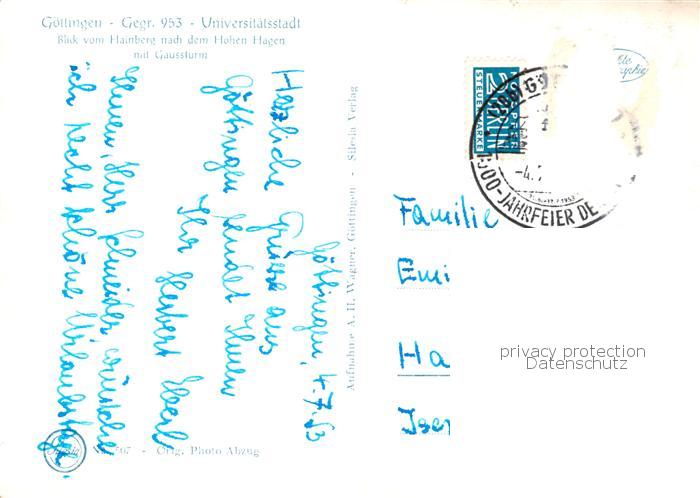 Göttingen - Gegr. 953 - Universitätsstadt
Blick vom Hainberg nach dem Hohen Hagen
mit Gaussturm
Göttingen, 4.7.53
Herzliche Grüsse aus
Göttingen sendet Ihnen
Ihr Herbert Eberl
Ihnen, Herr Schneider wünsche
ich recht schöne Urlaubstage.
Aufnahme A. H. Wagner, Göttingen - Silesia Verlag
Nr. 567 - Orig. Photo Abzug
2
NOTOPFER
BERLIN
STEUERMARKE
-4.7
1000-JAHRFEIER DE
Familie
Emi
Ha
Iser
privacy protection
Datenschutz